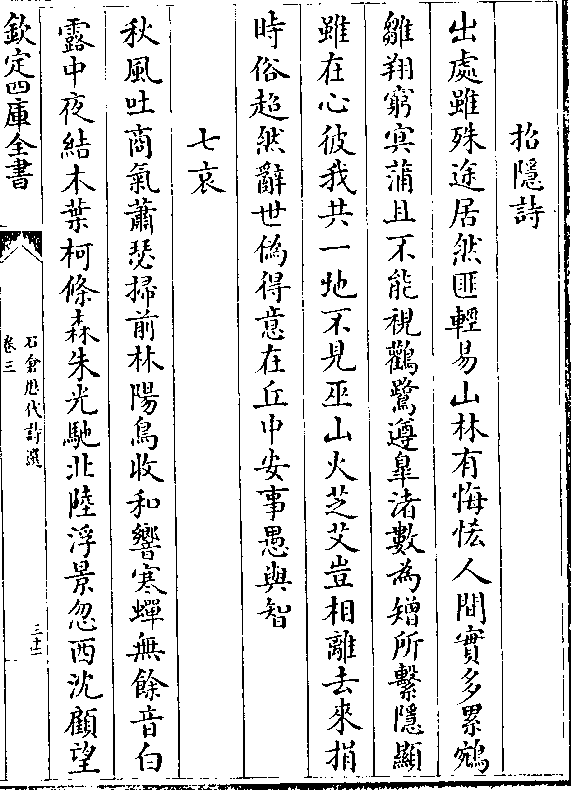 招隱詩
出處雖殊途居然匪輕易山林有悔恡人間實多累鵷
雛翔窮冥蒲且不能視鸛鷺遵臯渚數為矰所繫隱顯
雖在心彼我共一地不見巫山火芝艾豈相離去來捐
時俗超然辭世偽得意在丘中安事愚與智
七哀
秋風吐商氣蕭瑟掃前林陽鳥收和響寒蟬無餘音白
露中夜結木葉柯條森朱光馳北陸浮景忽西沈顧望
欽定四庫全書
石倉歷代詩選
卷三
三十二